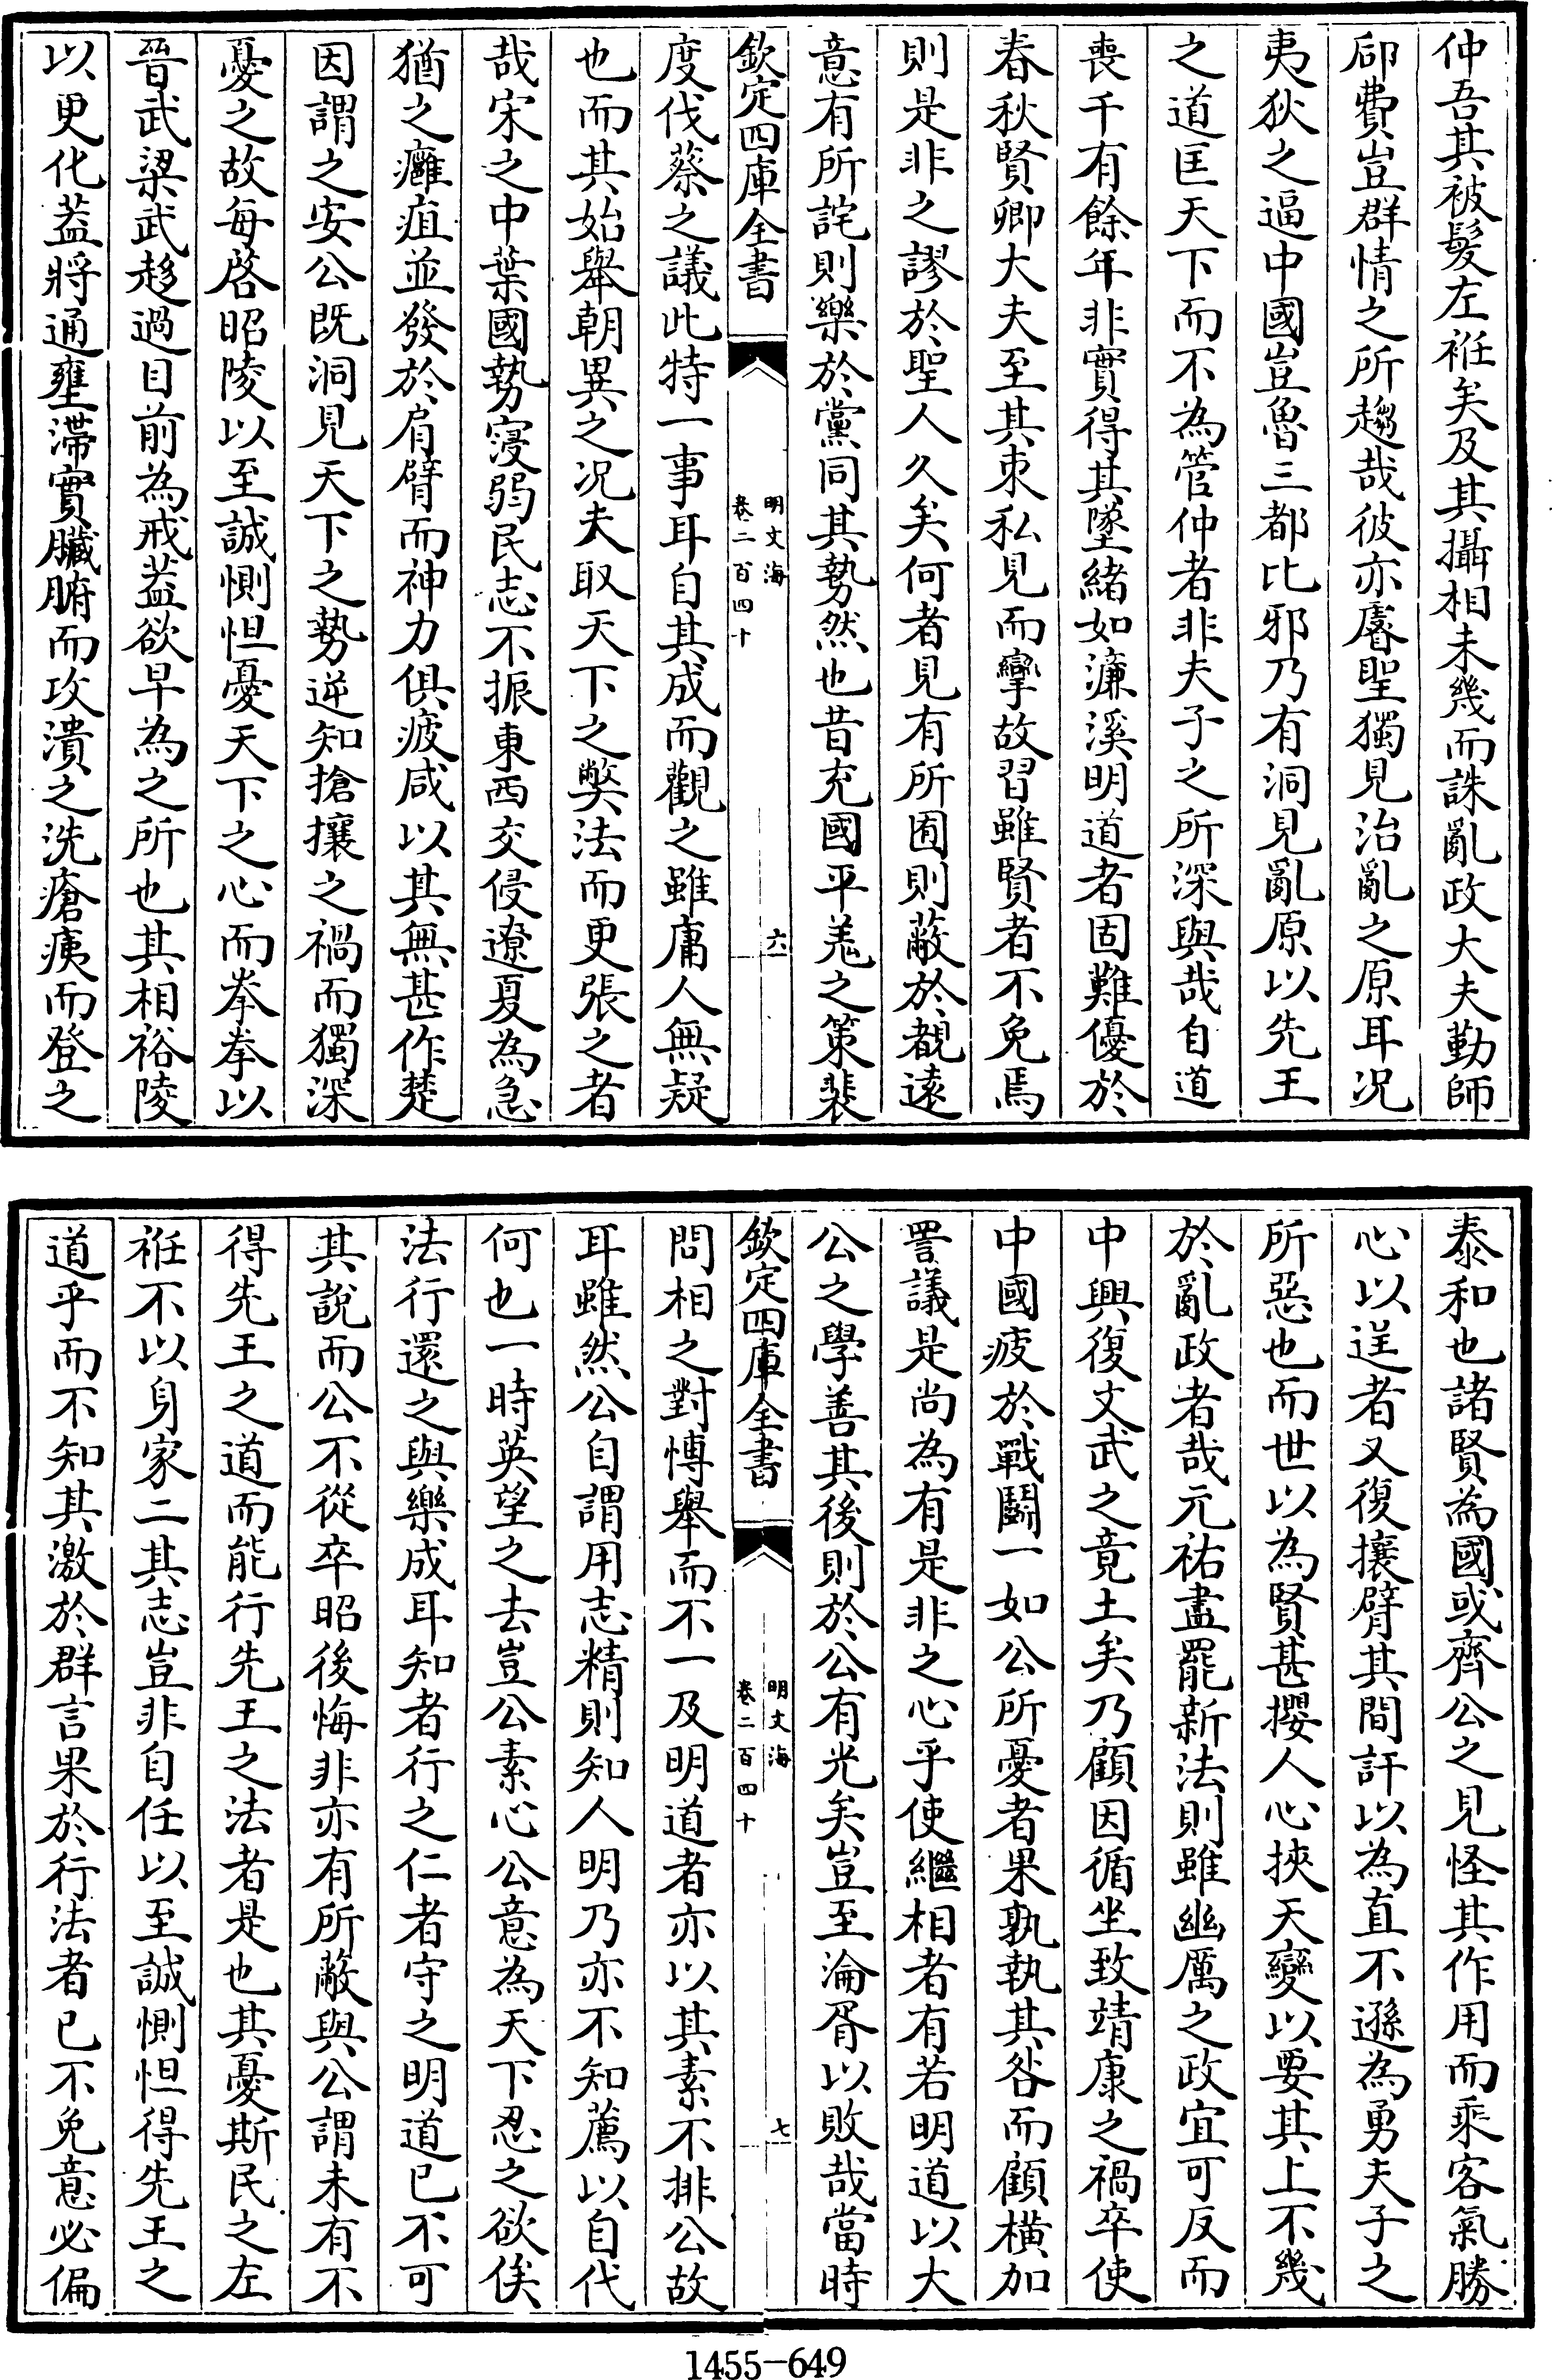 仲吾其被髮左袵矣及其攝相未幾而誅亂政大夫勤師
郈費豈群情之所趨哉彼亦睿聖獨見治亂之原耳况
夷狄之逼中國豈魯三都比邪乃有洞見亂原以先王
之道匡天下而不為管仲者非夫子之所深與哉自道
喪千有餘年非實得其墜緒如濂溪明道者固難優於
春秋賢卿大夫至其束私見而攣故習雖賢者不免焉
則是非之謬於聖人久矣何者見有所囿則蔽於覩遠
意有所詫則樂於黨同其勢然也昔充國平羌之策裴
欽定四庫全書
明文海
卷二百四十
六
度伐蔡之議此特一事耳自其成而觀之雖庸人無疑
也而其始舉朝異之况夫取天下之獘法而更張之者
哉宋之中葉國勢寖弱民志不振東西交侵遼夏為急
猶之癰疽並發於肩臂而神力俱疲咸以其無甚作楚
因謂之安公既洞見天下之勢逆知搶攘之禍而獨深
憂之故每啓昭陵以至誠惻怛憂天下之心而拳拳以
晉武梁武趍過目前為戒葢欲早為之所也其相裕陵
以更化葢將通壅滯實臟腑而攻潰之洗瘡痍而登之
泰和也諸賢為國或齊公之見怪其作用而乘客氣勝
心以逞者又復攘臂其間訐以為直不遜為勇夫子之
所惡也而世以為賢甚攖人心挾天變以要其上不幾
於亂政者哉元祐盡罷新法則雖幽厲之政宜可反而
中興復文武之竟土矣乃顧因循坐致靖康之禍卒使
中國疲於戰鬭一如公所憂者果孰執其咎而顧横加
詈議是尚為有是非之心乎使繼相者有若明道以大
公之學善其後則於公有光矣豈至淪胥以敗哉當時
欽定四庫全書
明文海
卷二百四十
七
問相之對愽舉而不一及明道者亦以其素不排公故
耳雖然公自謂用志精則知人明乃亦不知薦以自代
何也一時英望之去豈公素心公意為天下忍之欲俟
法行還之與樂成耳知者行之仁者守之明道已不可
其說而公不從卒昭後悔非亦有所蔽與公謂未有不
得先王之道而能行先王之法者是也其憂斯民之左
袵不以身家二其志豈非自任以至誠惻怛得先王之
道乎而不知其激於群言果於行法者已不免意必偏
1455-649